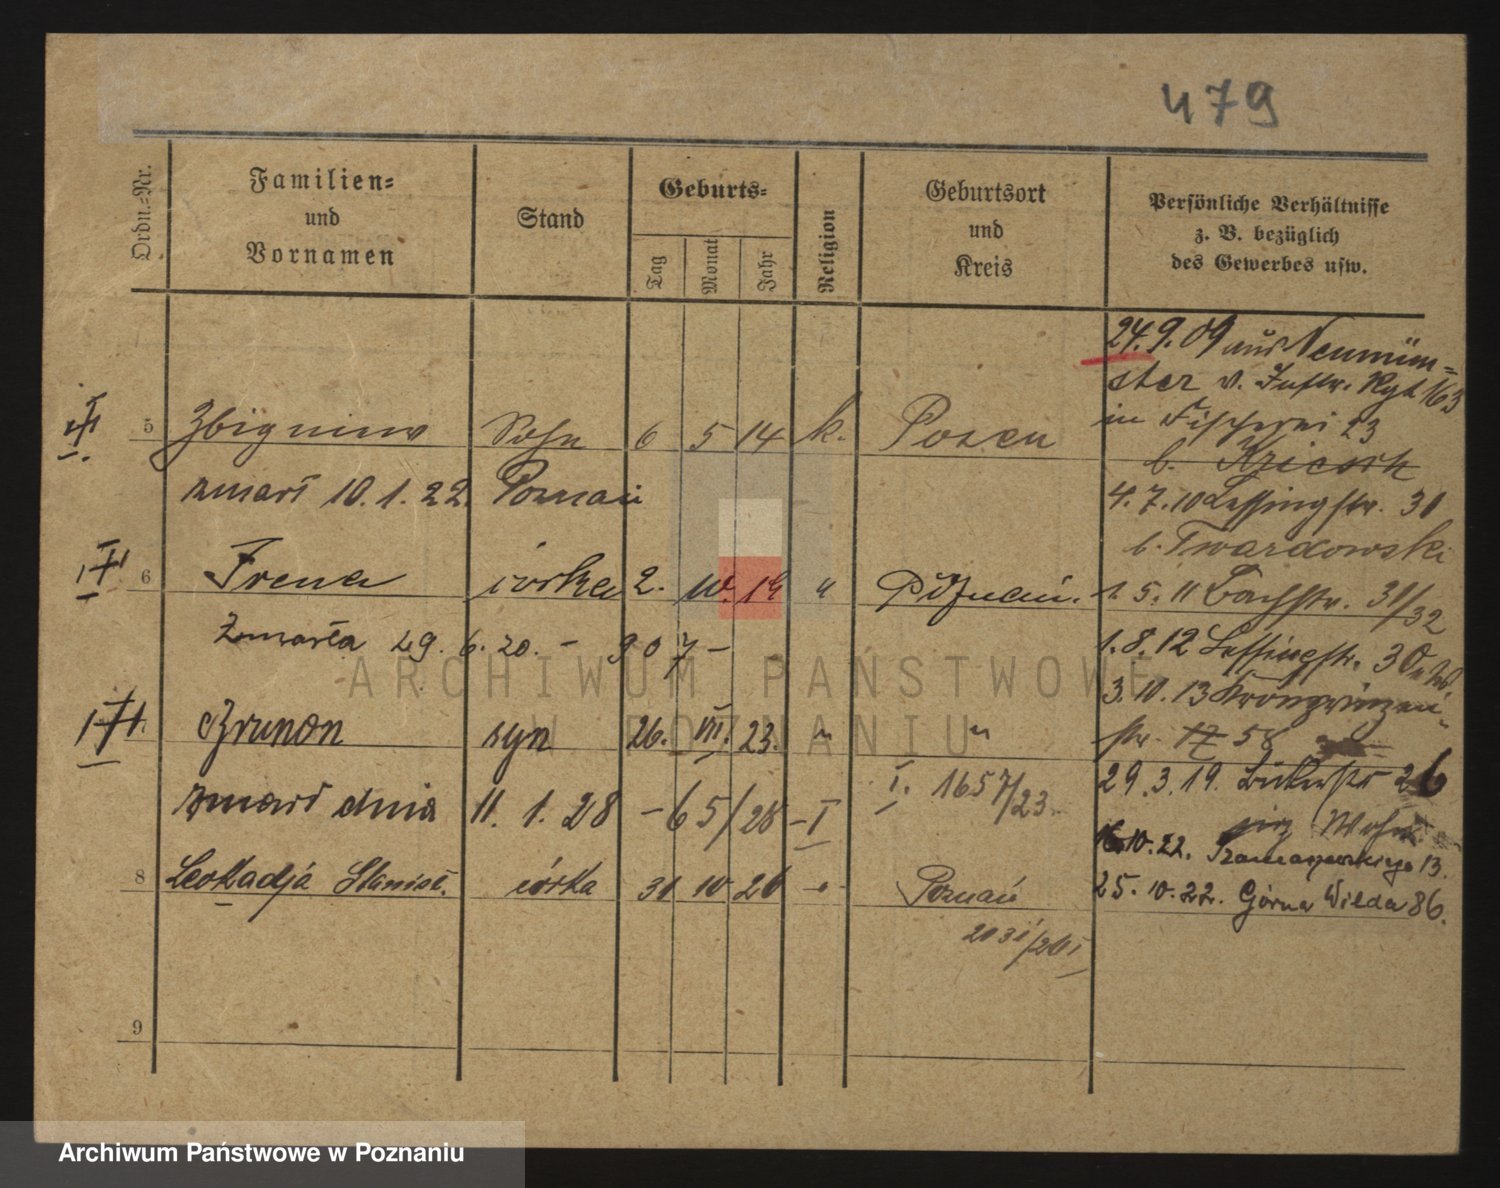 479
Ordn.-Nr.
Familien-
und
Vornamen
Stand
Geburts-
Tag
Monat
Jahr
Religion
Geburtsort
und
Kreis
Persönliche Verhältnisse
z. B. bezüglich
des Gewerbes usw.
24.9.09 aus Neumün-
ster v. Inftr. Rgt 163
in Fischerei 23
5 Zbigniew Sohn 6 5 14 k. Posen
zmarł 10.1.22. Poznań
4.7.10 Lessingstr. 30
b. Twardowski
6 Irena córka 2. 10. 19 " Poznań.
1.5.11 Bachstr. 31/32
Zmarła 29.6.20. - 907 -
1.8.12 Lessingstr. 30
3.10.13 Kronprinzen-
str. 17 58
Brunon syn 26. VII. 23. " "
I. 1657/23
29.3.19. 26
zmarł dnia 11.1.28 - 65/28 - I
16.10.22. 13.
8 Leokadja Stanisł. córka 31 10 26 -"- Poznań
25.10.22. Górna Wilda 86.
2031/26 I
9
ARCHIWUM PAŃSTWOWE
W POZNANIU
Archiwum Państwowe w Poznaniu